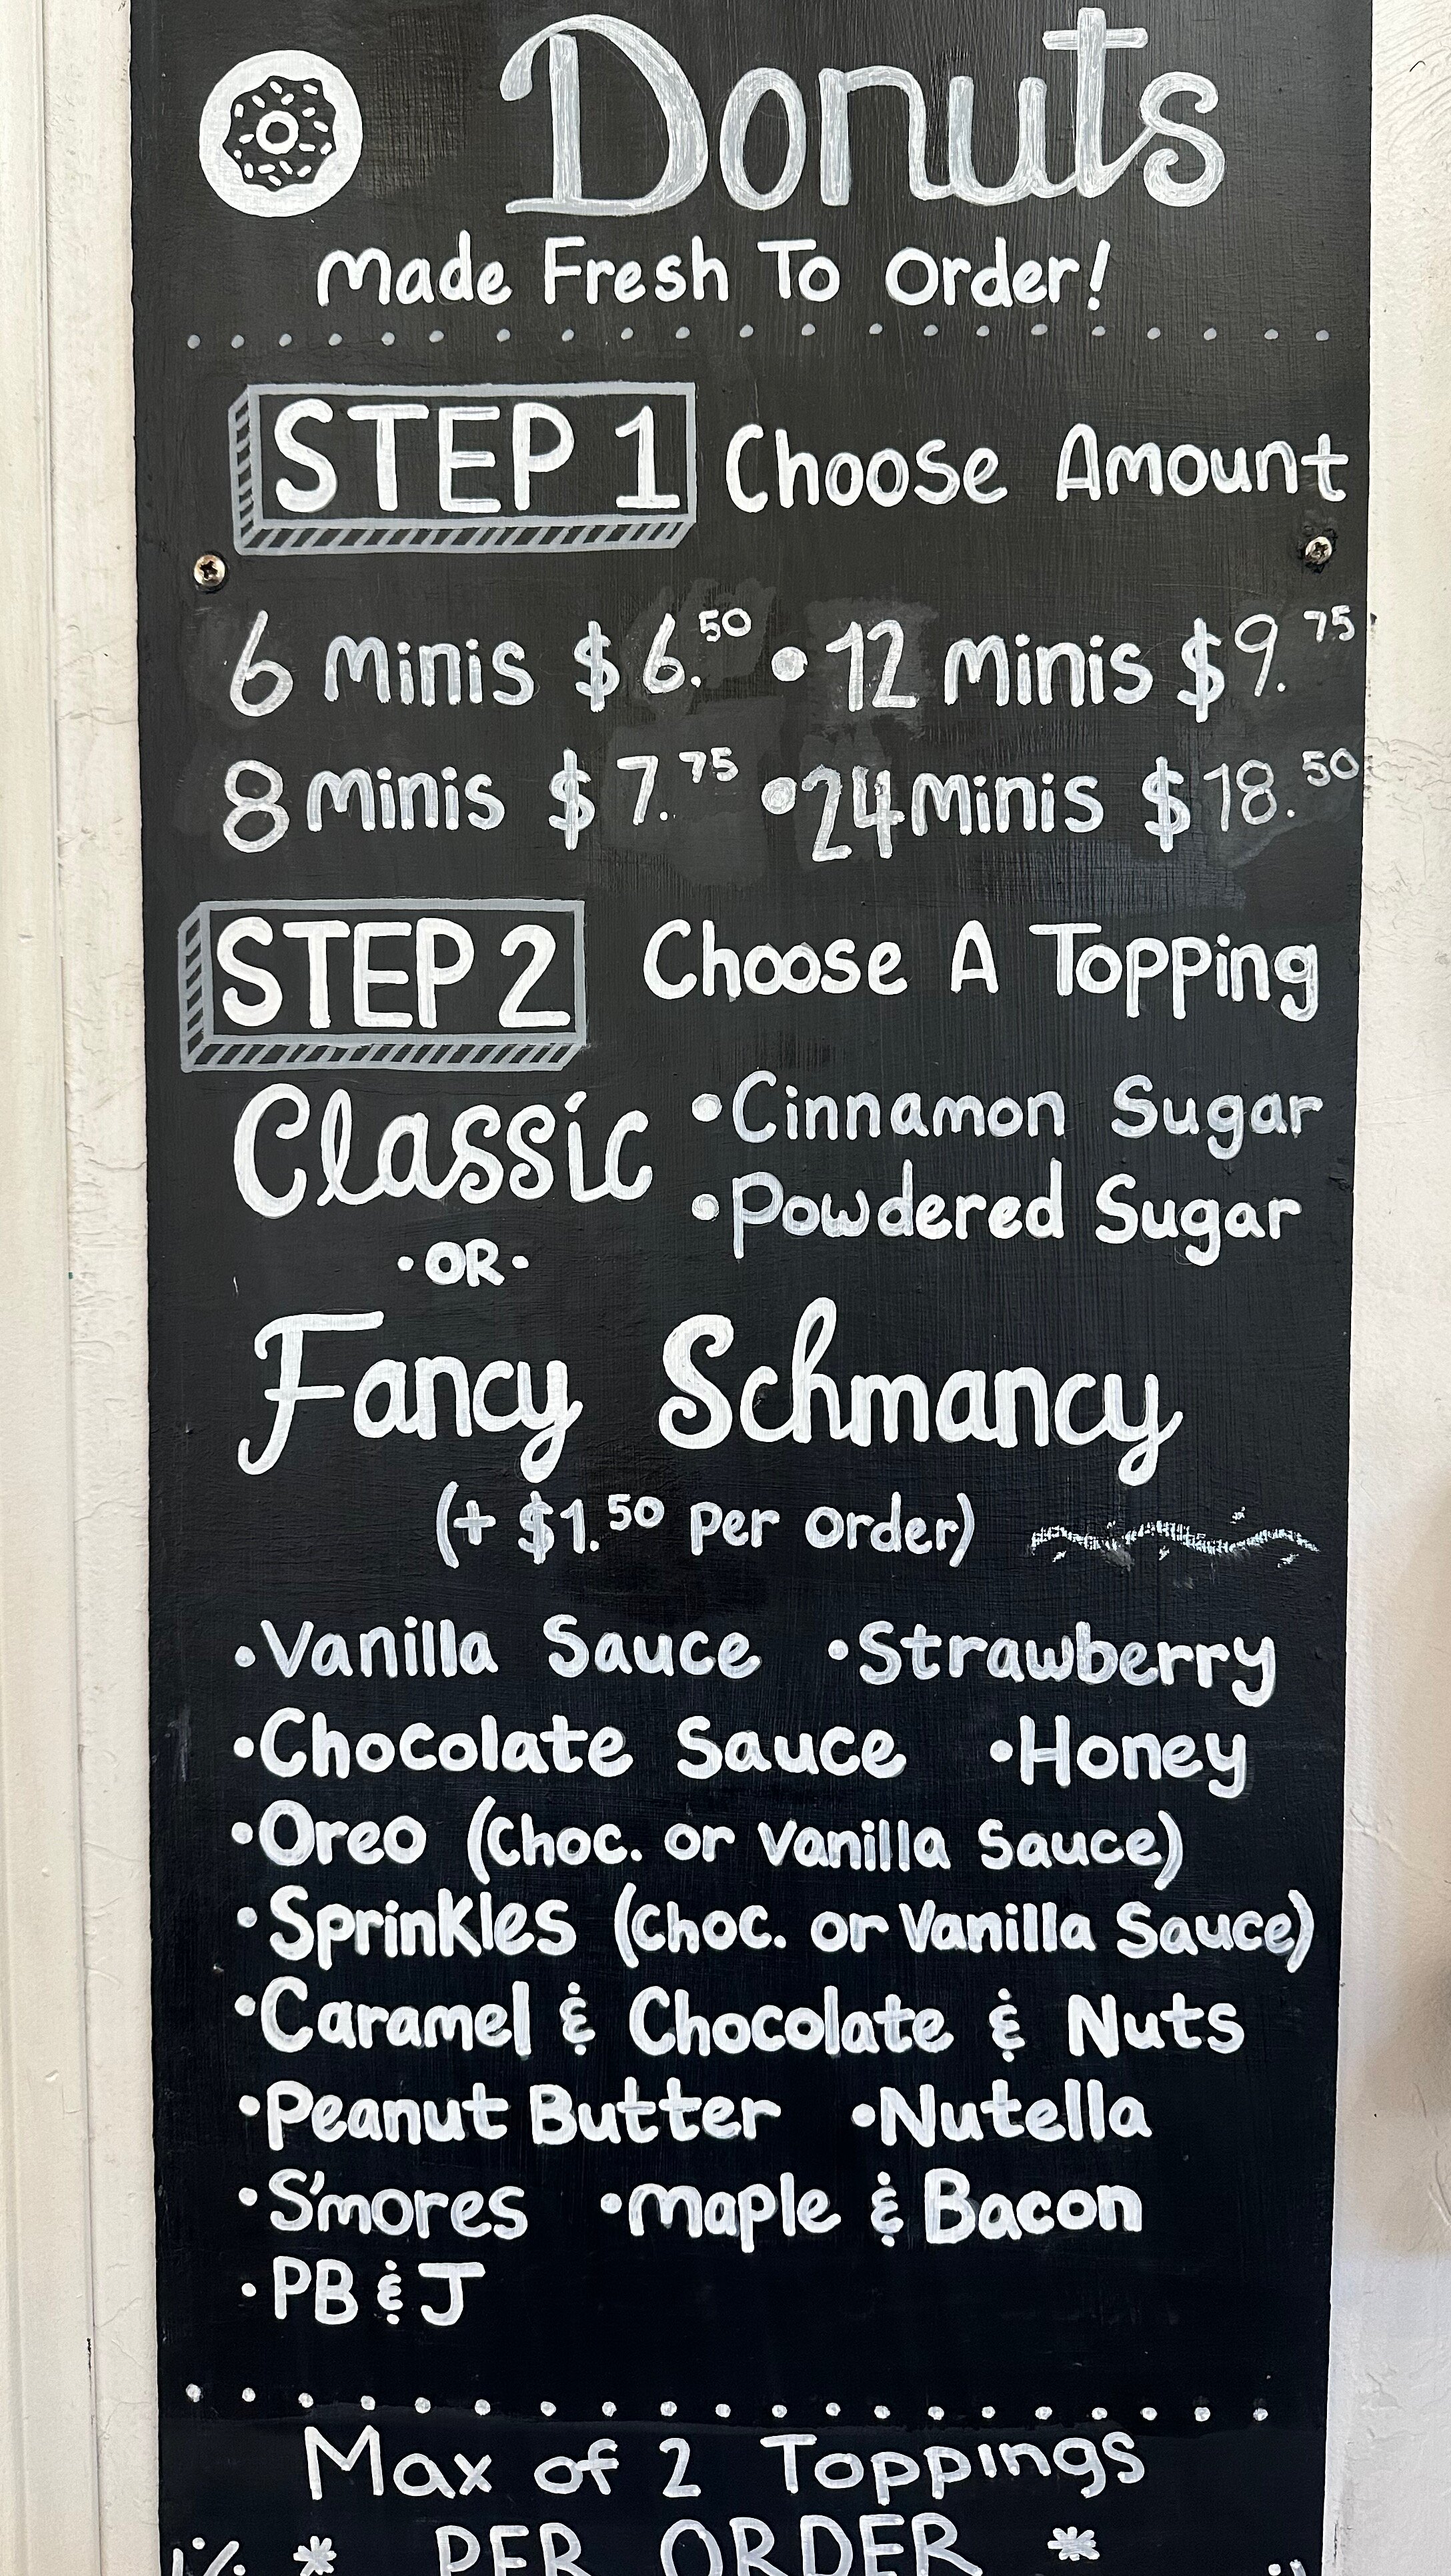 Donuts
Made Fresh To Order!
STEP 1 Choose Amount
6 Minis $6.50 • 12 Minis $9.75
8 Minis $7.75 • 24 Minis $18.50
STEP 2 Choose A Topping
Classic
• Cinnamon Sugar
• Powdered Sugar
• OR •
Fancy Schmancy
(+ $1.50 Per Order)
• Vanilla Sauce • Strawberry
• Chocolate Sauce • Honey
• Oreo (Choc. or Vanilla Sauce)
• Sprinkles (Choc. or Vanilla Sauce)
• Caramel & Chocolate & Nuts
• Peanut Butter • Nutella
• S'mores • Maple & Bacon
• PB & J
Max of 2 Toppings
* PER ORDER *